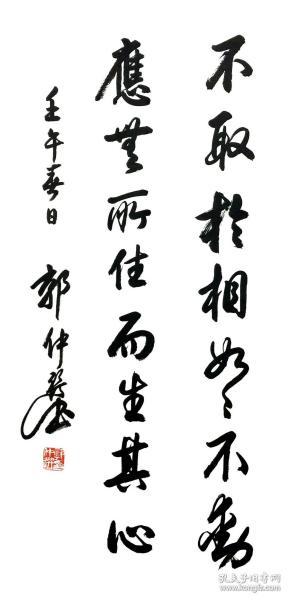 不取於相如々不動
應無所住而生其心
壬午春日
郭仲
孔夫子旧书网